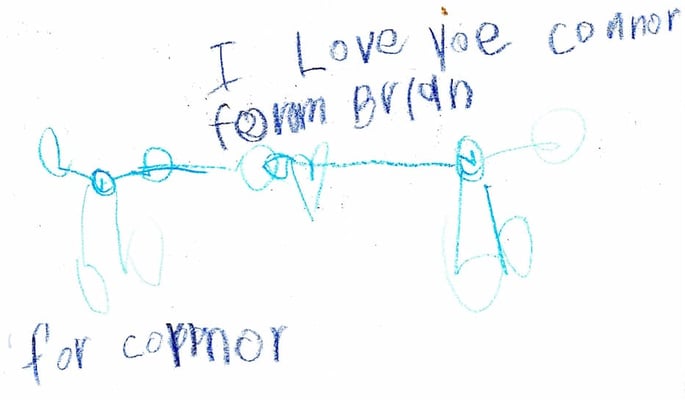 I Love yoe connor
form Brian
for connor